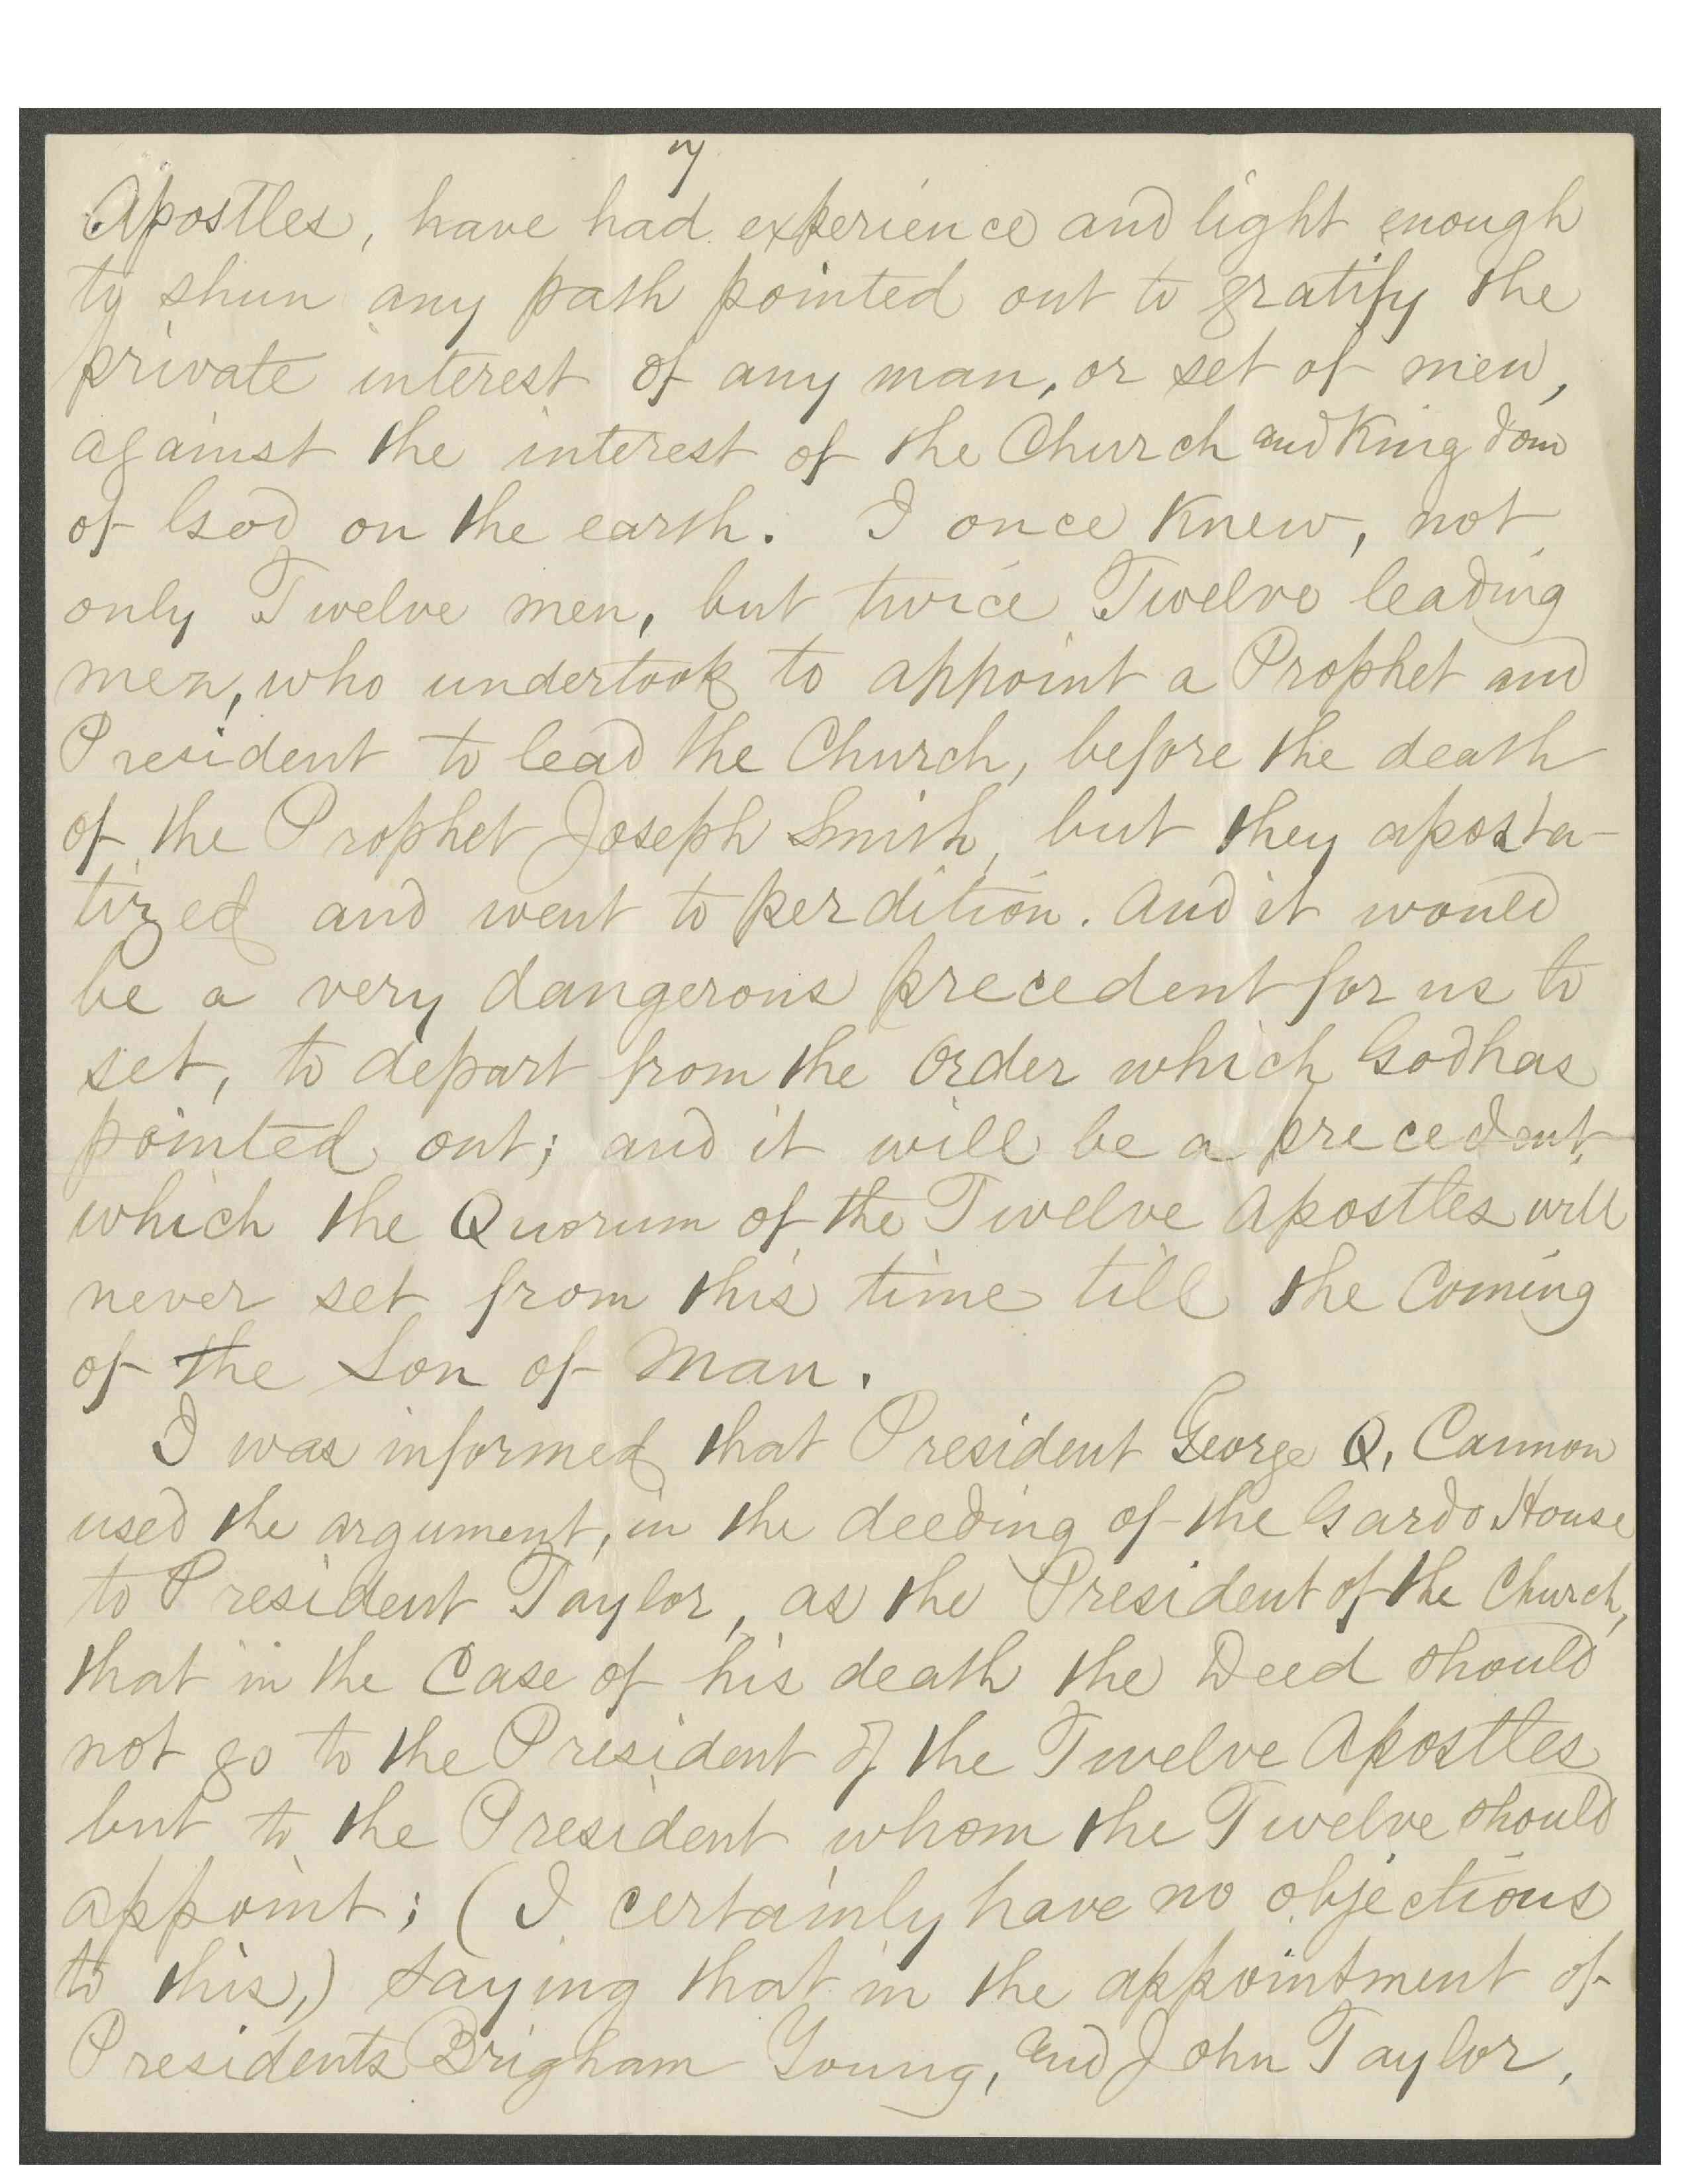 7
Apostles, have had experience and light enough
to shun any path pointed out to gratify the
private interest of any man, or set of men,
against the interest of the Church and Kingdom
of God on the earth. I once knew, not
only Twelve men, but twice Twelve leading
men, who undertook to appoint a Prophet and
President to lead the Church, before the death
of the Prophet Joseph Smith, but they aposta-
tized and went to perdition. And it would
be a very dangerous precedent for us to
set, to depart from the order which God has
pointed out; and it will be a precedent,
which the Quorum of the Twelve Apostles will
never set from this time till the Coming
of the Son of Man.
I was informed that President George Q. Cannon
used the argument, in the deeding of the Gardo House
to President Taylor, as the President of the Church,
that in the Case of his death the Deed should
not go to the President of the Twelve Apostles
but to the President whom the Twelve should
appoint; (I certainly have no objections
to this,) saying that in the appointment of
Presidents Brigham Young, and John Taylor,